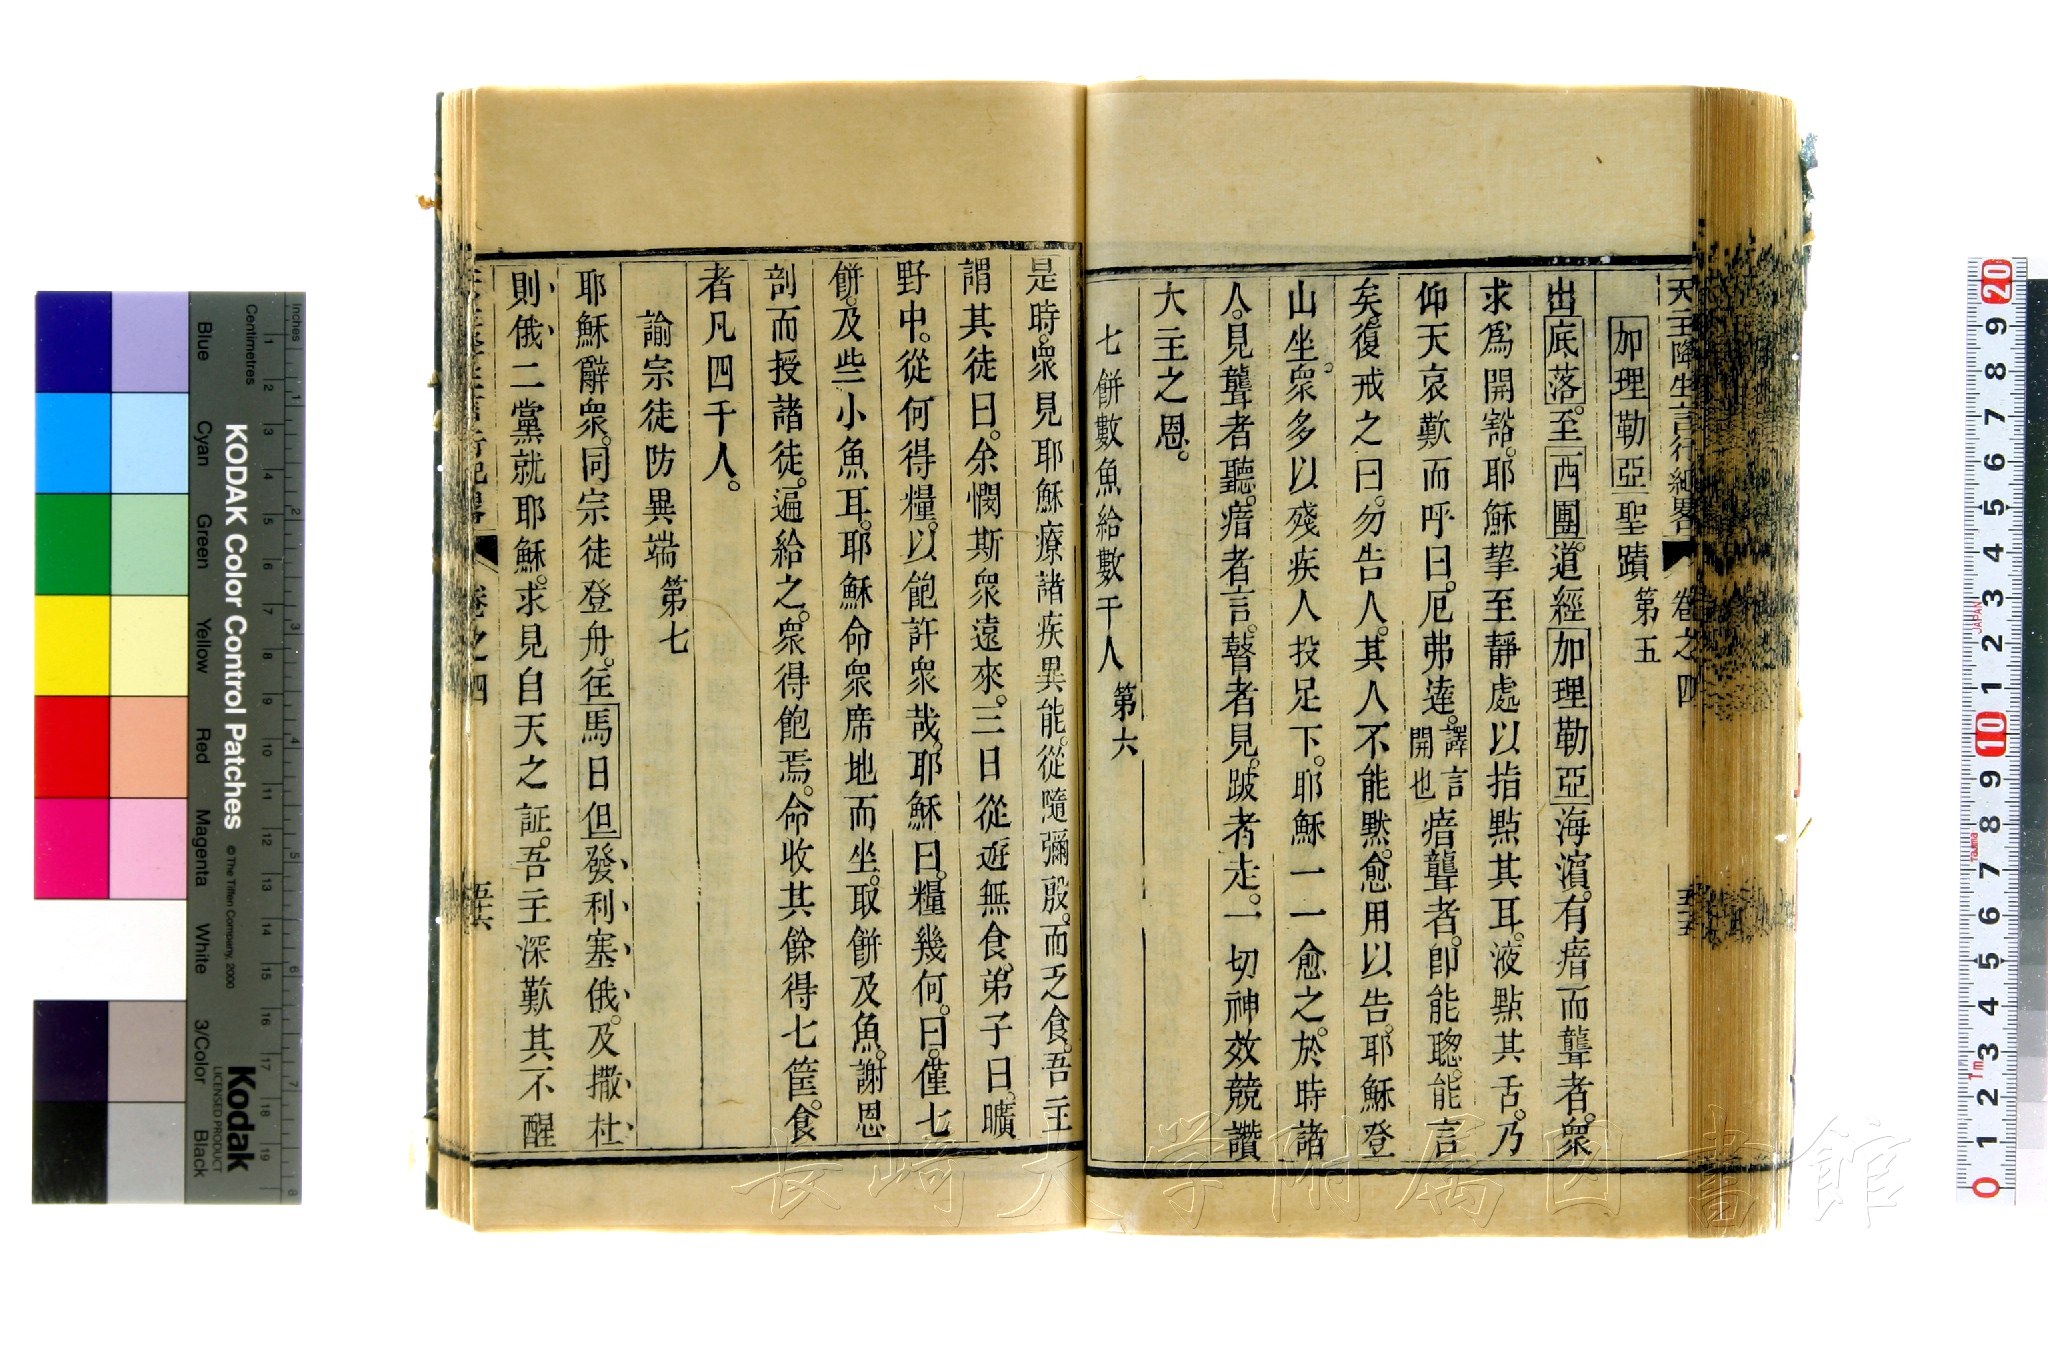 天主降生言行紀畧 卷之四 五十五
加理勒亞聖蹟 第五
出底落。至西團。道經加理勒亞海濱。有瘖而聾者。衆
求爲開豁。耶穌挈至靜處以指點其耳。液點其舌。乃
仰天哀歎而呼曰。厄弗達。譯言開也 瘖聾者。卽能聰。能言
矣。復戒之曰。勿告人。其人不能默。愈用以告。耶穌登
山坐。衆多以殘疾人投足下。耶穌一一愈之。於時諸
人。見聾者聽。瘖者言。瞽者見。跛者走。一切神效競讚
大主之恩。
七餅數魚給數千人 第六
是時。衆見耶穌療諸疾異能。從隨彌殷。而乏食。吾主
謂其徒曰。余憫斯衆遠來。三日從遊無食。弟子曰。曠
野中。從何得糧。以飽許衆哉。耶穌曰。糧幾何。曰。僅七
餅。及些小魚耳。耶穌命衆席地而坐。取餅及魚。謝恩
剖而授諸徒。遍給之。衆得飽焉。命收其餘得七筐。食
者凡四千人。
諭宗徒防異端 第七
耶穌辭衆。同宗徒登舟。往馬日但。發利塞俄。及撒杜
則俄二黨就耶穌。求見自天之証。吾主深歎其不醒
卷之四
KODAK Color Control Patches
© The Tiffen Company, 2000
Kodak
LICENSED PRODUCT
Inches
Centimetres
Blue
Cyan
Green
Yellow
Red
Magenta
White
3/Color
Black
JAPAN
長崎大学附属図書館